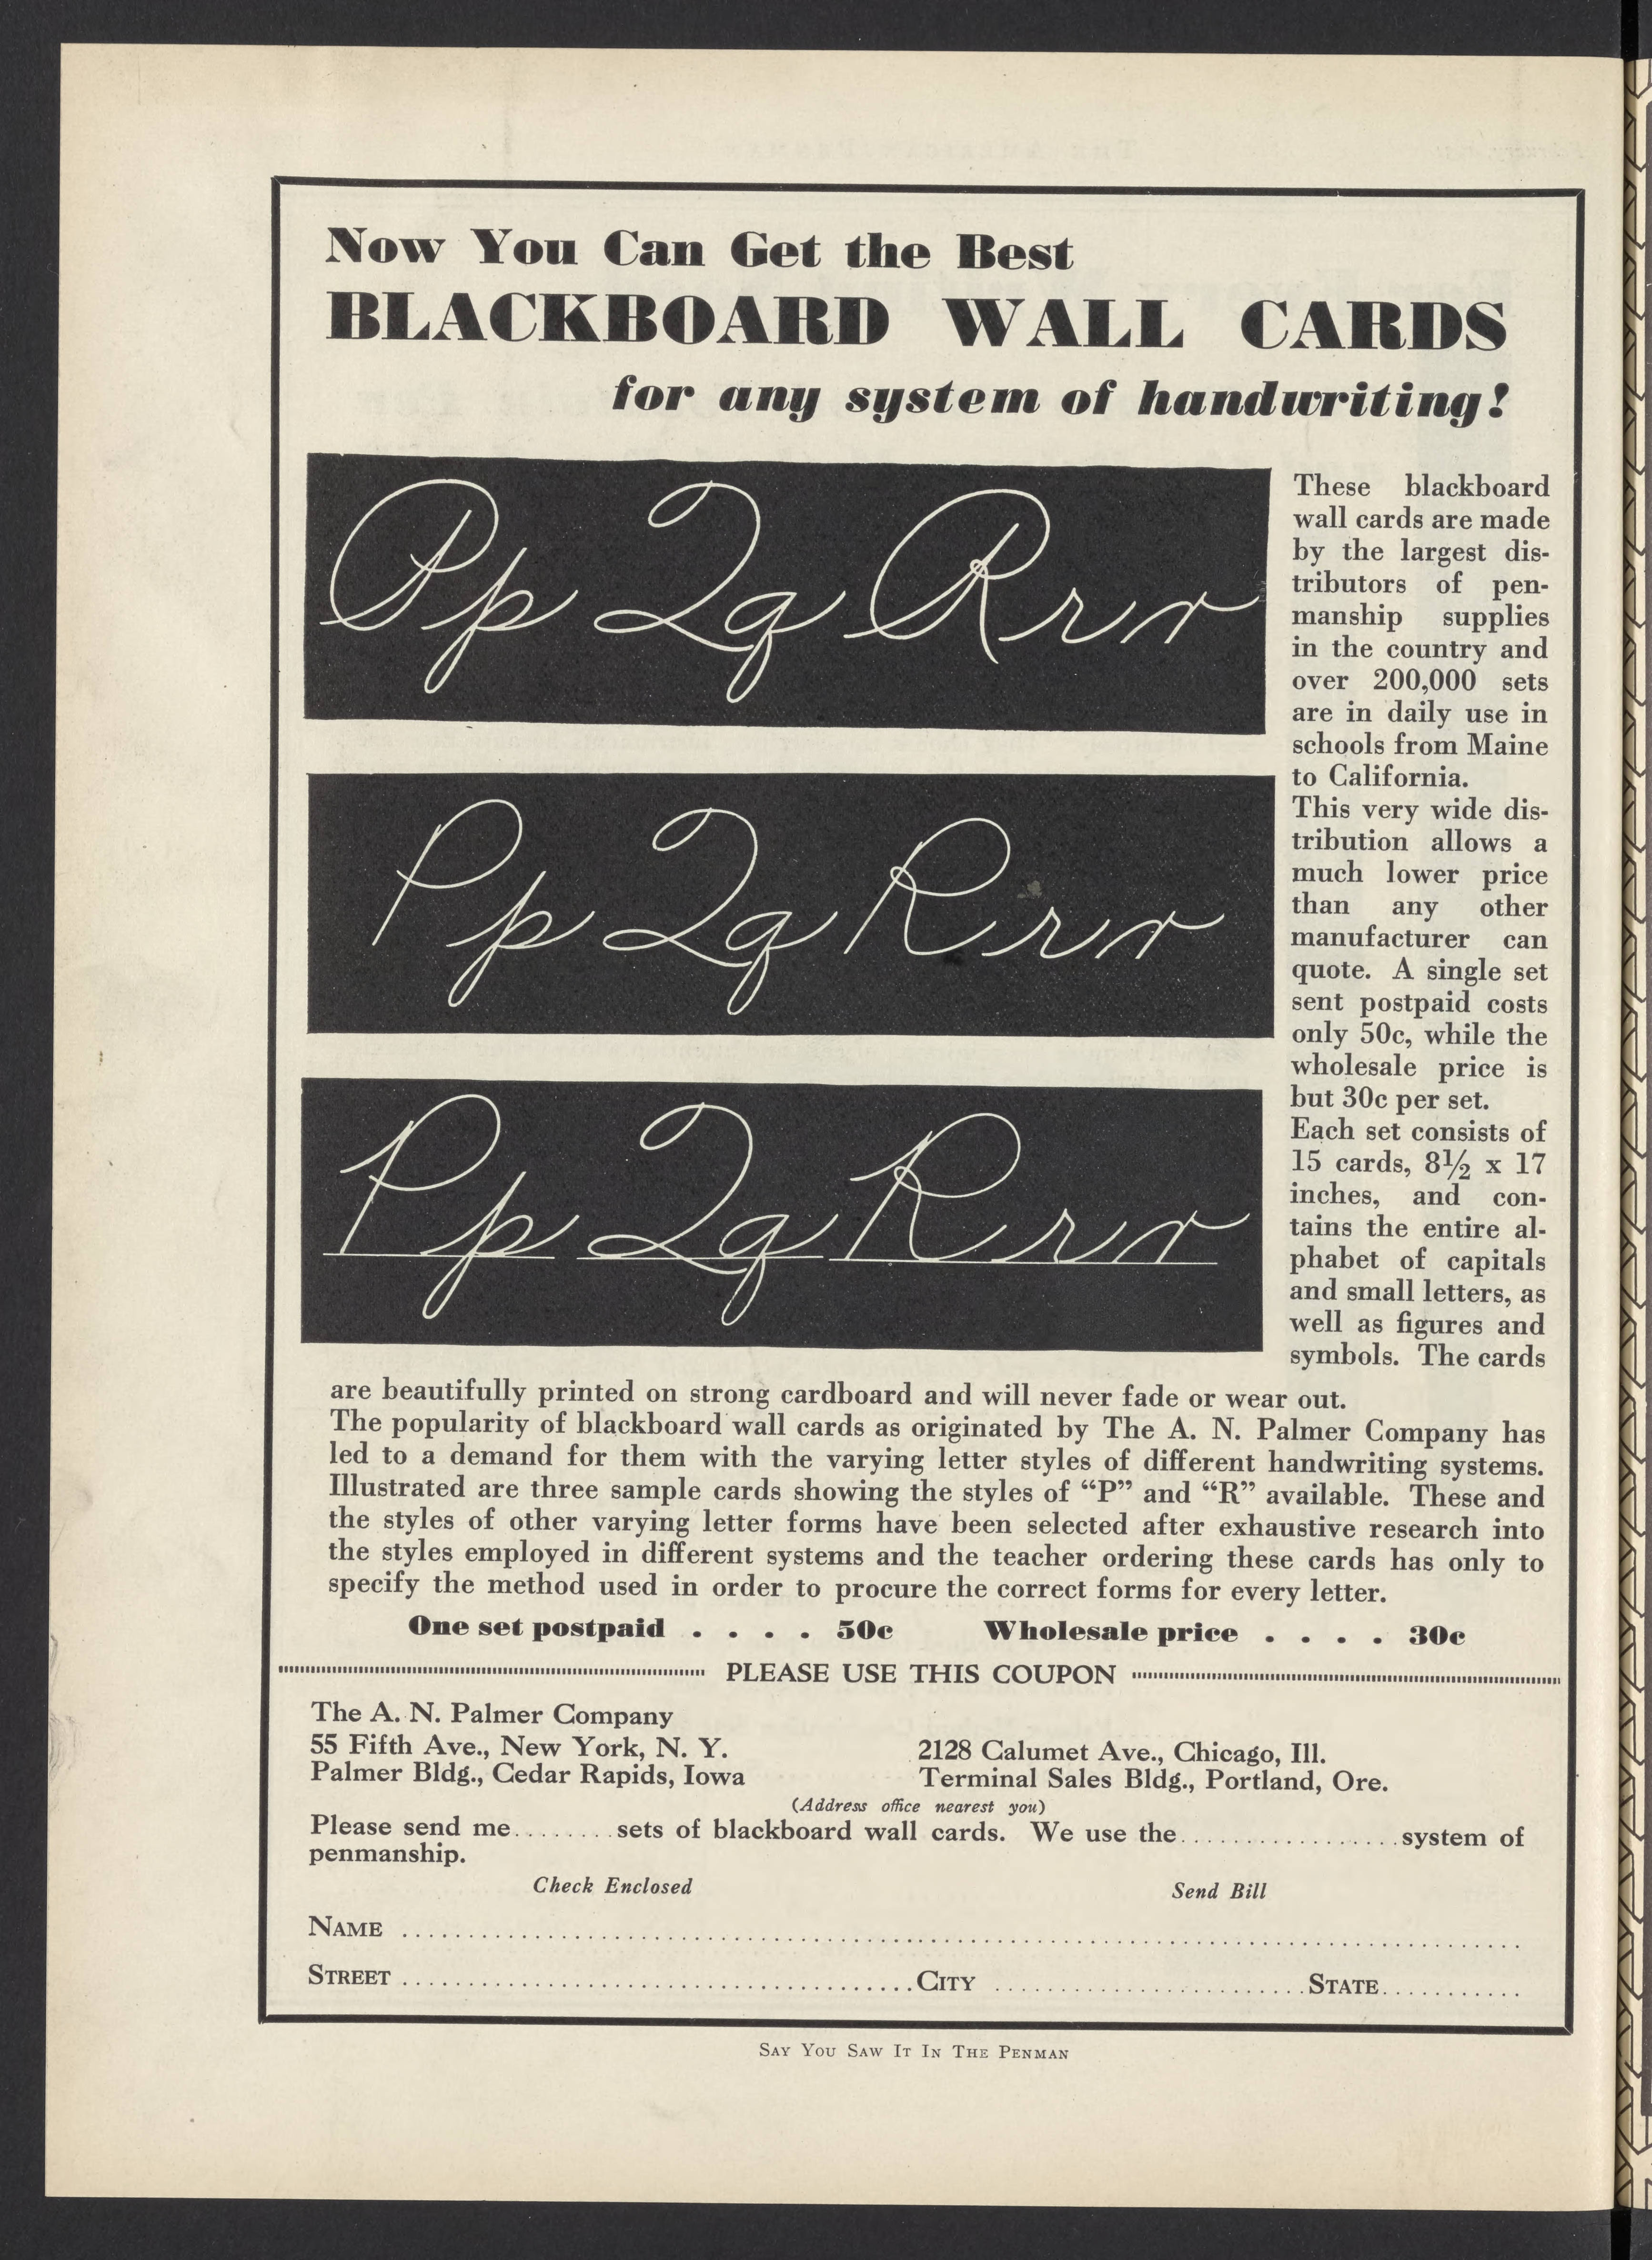 Now You Can Get the Best
BLACKBOARD WALL CARDS
for any system of handwriting!
P p Q q R r r
P p Q q R r r
P p Q q R r r
These blackboard
wall cards are made
by the largest dis-
tributors of pen-
manship supplies
in the country and
over 200,000 sets
are in daily use in
schools from Maine
to California.
This very wide dis-
tribution allows a
much lower price
than any other
manufacturer can
quote. A single set
sent postpaid costs
only 50c, while the
wholesale price is
but 30c per set.
Each set consists of
15 cards, 8½ x 17
inches, and con-
tains the entire al-
phabet of capitals
and small letters, as
well as figures and
symbols. The cards
are beautifully printed on strong cardboard and will never fade or wear out.
The popularity of blackboard wall cards as originated by The A. N. Palmer Company has
led to a demand for them with the varying letter styles of different handwriting systems.
Illustrated are three sample cards showing the styles of “P” and “R” available. These and
the styles of other varying letter forms have been selected after exhaustive research into
the styles employed in different systems and the teacher ordering these cards has only to
specify the method used in order to procure the correct forms for every letter.
One set postpaid . . . . 50c Wholesale price . . . . 30c
PLEASE USE THIS COUPON
The A. N. Palmer Company
55 Fifth Ave., New York, N. Y. 2128 Calumet Ave., Chicago, Ill.
Palmer Bldg., Cedar Rapids, Iowa Terminal Sales Bldg., Portland, Ore.
(Address office nearest you)
Please send me........sets of blackboard wall cards. We use the.................system of
penmanship.
Check Enclosed Send Bill
NAME ........................................
STREET ........................................CITY ........................STATE...........
SAY YOU SAW IT IN THE PENMAN